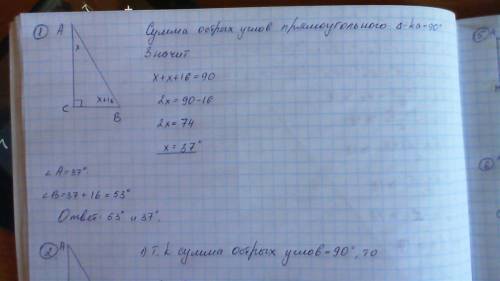 ① A
Сумма острых углов прямоугольного Δ-ка=90°
Значит
x
x+x+16=90
C
x+16
B
2x=90-16
2x=74
x=37°
∠A=37°
∠B=37+16=53°
Ответ: 53° и 37°.
② A
1) Т.к сумма острых углов=90°, то
⑤ A
⑥